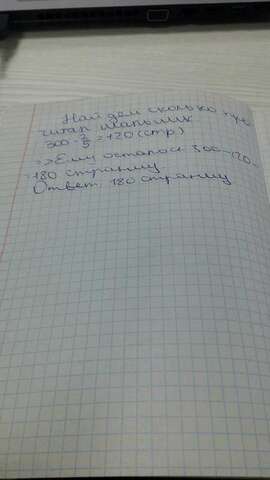 Найдем сколько про
читал мальчик
300 · 2/5 = 120 (стр)
=> Ему осталось 300-120=
=180 страниц
Ответ 180 страниц